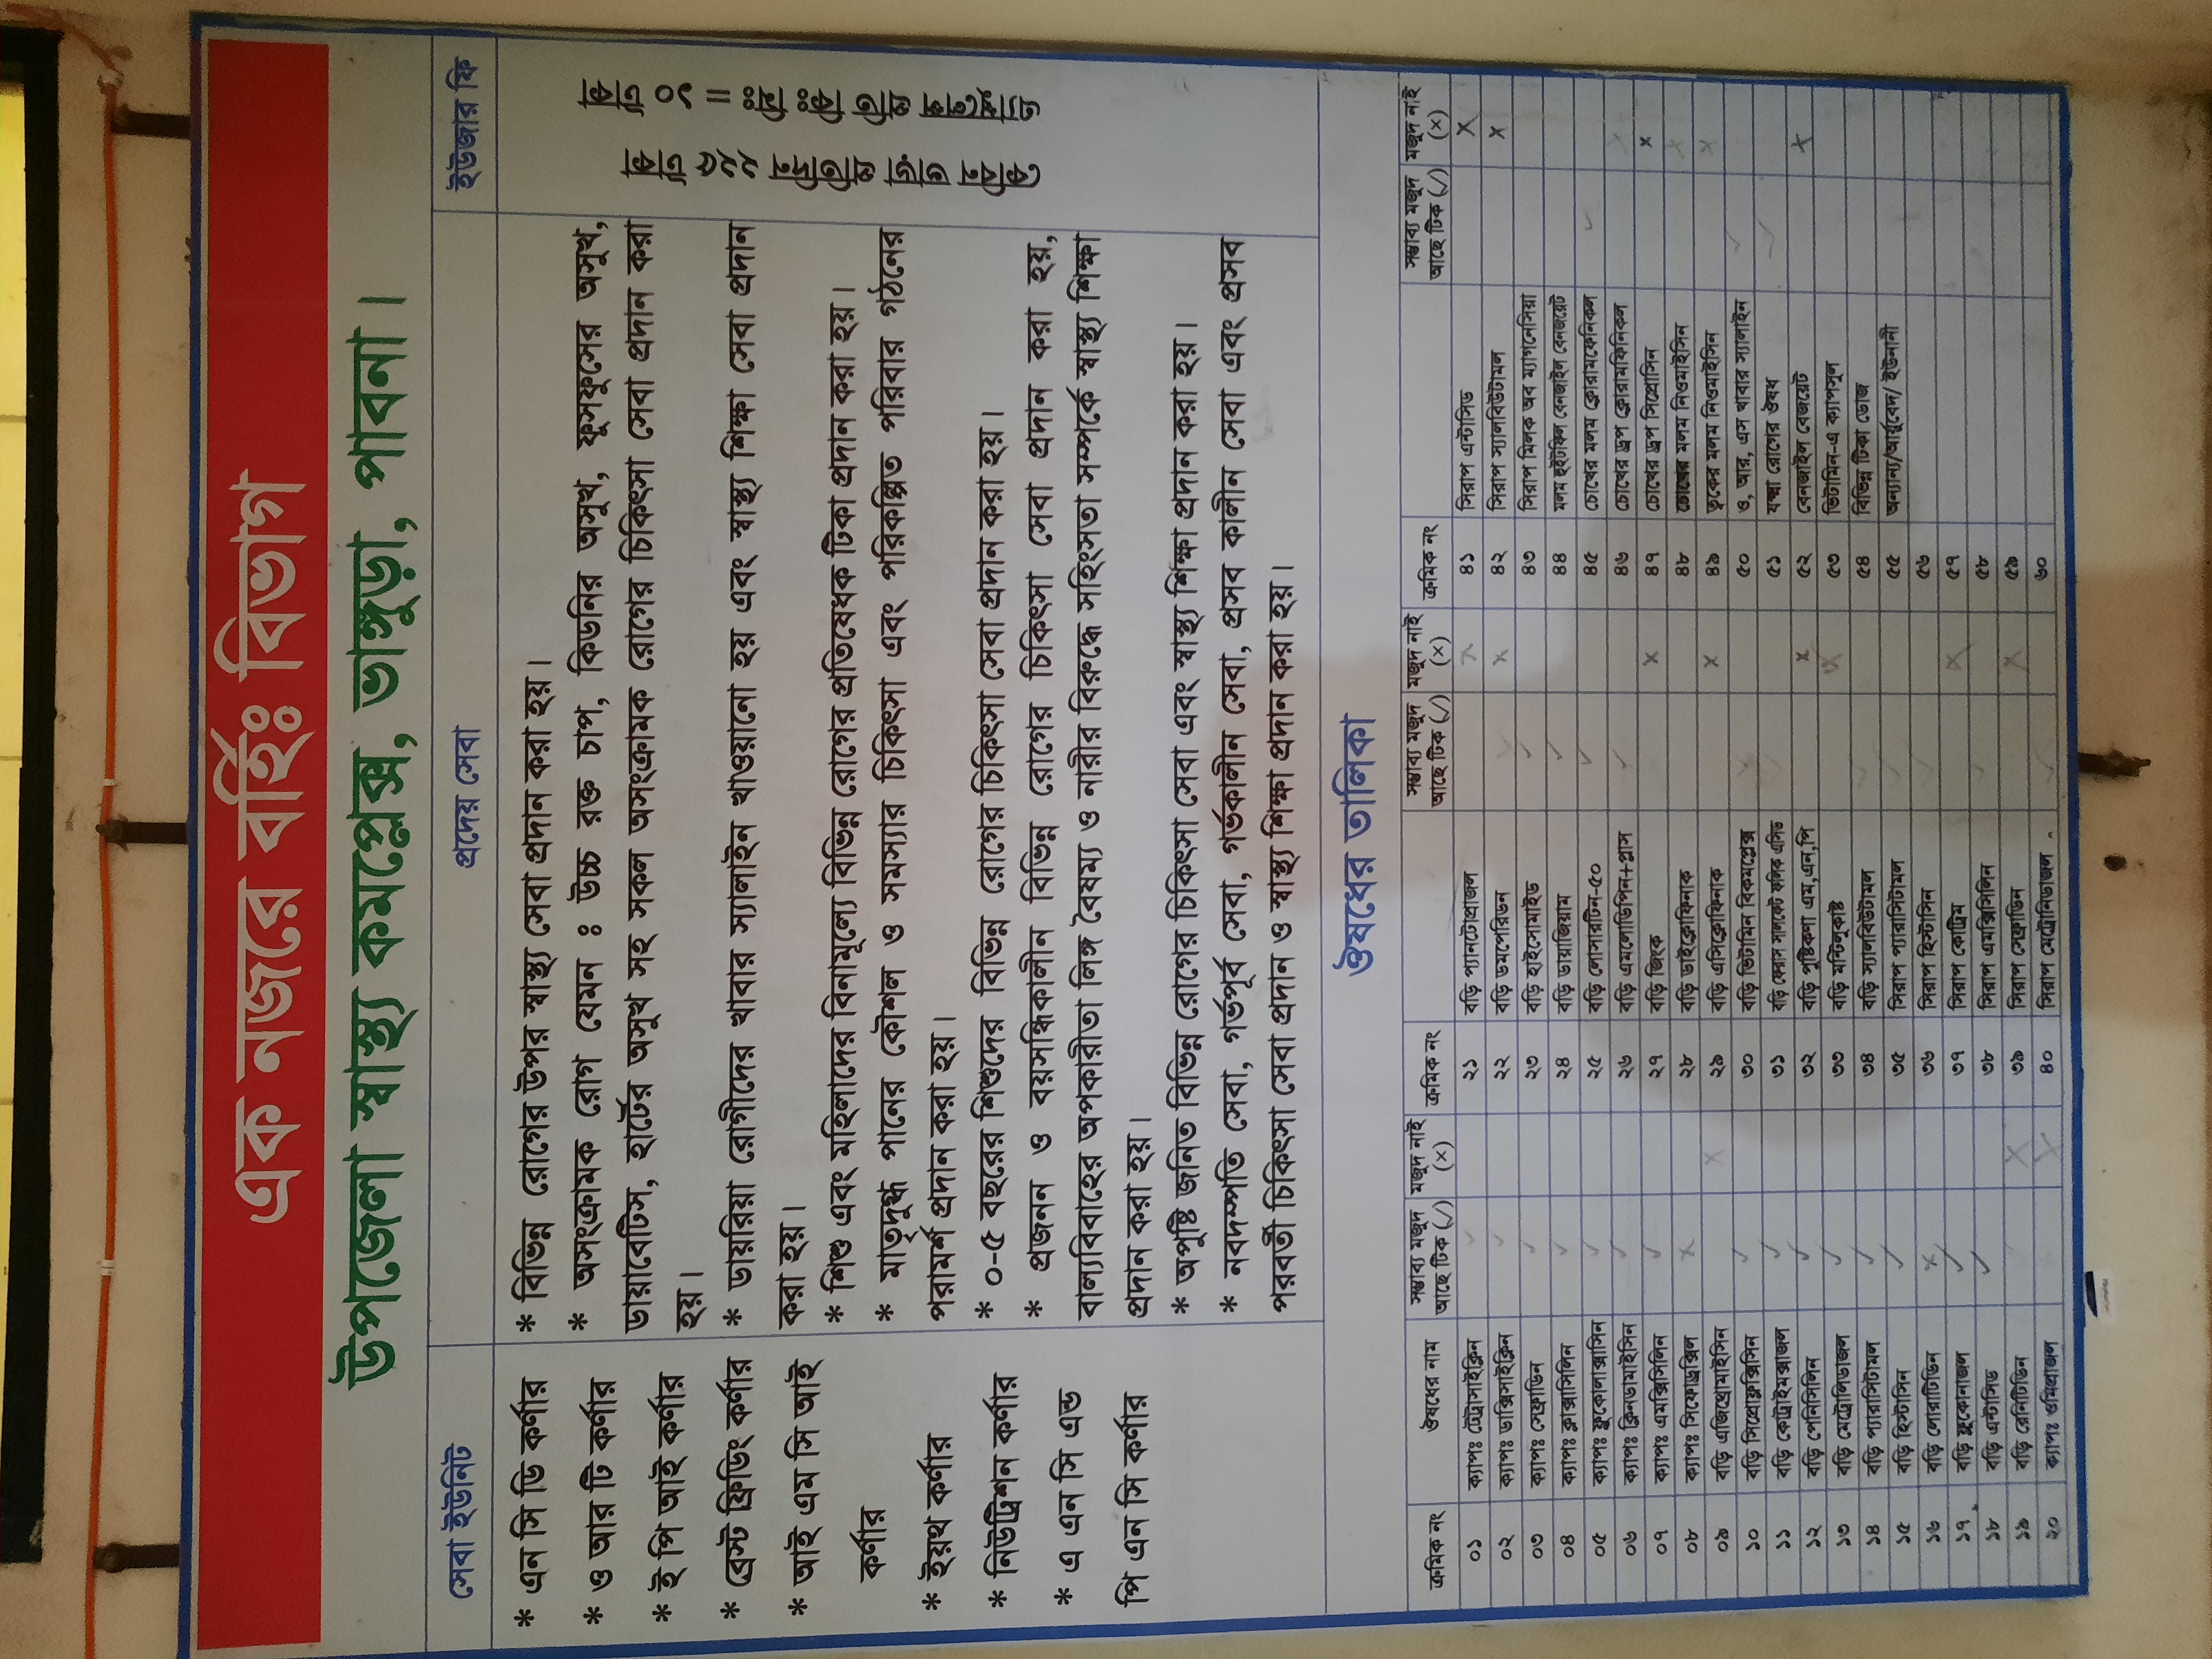 এক নজরে বর্হিঃ বিভাগ
উপজেলা স্বাস্থ্য কমপ্লেক্স, ভাঙ্গুড়া, পাবনা।
সেবা ইউনিট
* এন সি ডি কর্ণার
* ও আর টি কর্ণার
* ই পি আই কর্ণার
* ব্রেস্ট ফ্রিডিং কর্ণার
* আই এম সি আই
কর্ণার
* ইয়থ কর্ণার
* নিউট্রিশন কর্ণার
* এ এন সি এন্ড
পি এন সি কর্ণার
প্রদেয় সেবা
* বিভিন্ন রোগের উপর স্বাস্থ্য সেবা প্রদান করা হয়।
* অসংক্রামক রোগ যেমন ঃ উচ্চ রক্ত চাপ, কিডনির অসুখ, ফুসফুসের অসুখ,
ডায়াবেটিস, হার্টের অসুখ সহ সকল অসংক্রামক রোগের চিকিৎসা সেবা প্রদান করা
হয়।
* ডায়রিয়া রোগীদের খাবার স্যালাইন খাওয়ানো হয় এবং স্বাস্থ্য শিক্ষা সেবা প্রদান
করা হয়।
* শিশু এবং মহিলাদের বিনামূল্যে বিভিন্ন রোগের প্রতিষেধক টিকা প্রদান করা হয়।
* মাতৃদুগ্ধ পানের কৌশল ও সমস্যার চিকিৎসা এবং পরিকল্পিত পরিবার গঠনের
পরামর্শ প্রদান করা হয়।
* ০-৫ বছরের শিশুদের বিভিন্ন রোগের চিকিৎসা সেবা প্রদান করা হয়।
* প্রজনন ও বয়সন্ধিকালীন বিভিন্ন রোগের চিকিৎসা সেবা প্রদান করা হয়,
বাল্যবিবাহের অপকারীতা লিঙ্গ বৈষম্য ও নারীর বিরুদ্ধে সহিংসতা সম্পর্কে স্বাস্থ্য শিক্ষা
প্রদান করা হয়।
* অপুষ্টি জনিত বিভিন্ন রোগের চিকিৎসা সেবা এবং স্বাস্থ্য শিক্ষা প্রদান করা হয়।
* নবদম্পতি সেবা, গর্ভপূর্ব সেবা, গর্ভকালীন সেবা, প্রসব কালীন সেবা এবং প্রসব
পরবর্তী চিকিৎসা সেবা প্রদান ও স্বাস্থ্য শিক্ষা প্রদান করা হয়।
ইউজার ফি
কেবিন ভাড়া প্রতিদিন ২২৫ টাকা
এ্যাম্বুলেন্স প্রতি কিঃ মিঃ = ১০ টাকা
ঔষধের তালিকা
ক্রমিক নং ঔষধের নাম সম্ভাব্য মজুদ আছে টিক (✓) মজুদ নাই (×)
০১ ক্যাপঃ টেট্রাসাইক্লিন ✓
০২ ক্যাপঃ ডক্সিসাইক্লিন ✓
০৩ ক্যাপঃ সেফ্রাডিন ✓
০৪ ক্যাপঃ ক্লক্সাসিলিন ✓
০৫ ক্যাপঃ ফ্লুকোলাক্সাসিন ✓
০৬ ক্যাপঃ ক্লিনডামাইসিন ✓
০৭ ক্যাপঃ এমক্সিসিলিন ✓
০৮ ক্যাপঃ সিফোড্রক্সিল ×
০৯ বড়ি এজিথ্রোমাইসিন ×
১০ বড়ি সিপ্রোফ্লক্সিসিন ✓
১১ বড়ি কেট্রাইমক্সাজল ✓
১২ বড়ি পেনিসিলিন ✓
১৩ বড়ি মেট্রোলিডাজল ✓
১৪ বড়ি প্যারাসিটামল ✓
১৫ বড়ি হিস্টাসিন ✓
১৬ বড়ি লোরাটিডিন ×
১৭ বড়ি ফ্লুকোনাজল ✓
১৮ বড়ি এন্টাসিড ✓
১৯ বড়ি রেনিটিডিন ×
২০ ক্যাপঃ ওমিপ্রাজল ×
ক্রমিক নং সম্ভাব্য মজুদ আছে টিক (✓) মজুদ নাই (×)
২১ বড়ি প্যানটোপ্রাজল ×
২২ বড়ি ডমপেরিডন ×
২৩ বড়ি হাইসোমাইড ✓
২৪ বড়ি ডায়াজিয়াম ✓
২৫ বড়ি লোসারটিন-৫০ ✓
২৬ বড়ি এমলোডিপিন+প্লাস ✓
২৭ বড়ি জিংক ×
২৮ বড়ি ডাইক্লোফিনাক
২৯ বড়ি এসিক্লোফিনাক ×
৩০ বড়ি ভিটামিন বিকমপ্লেক্স ✓
৩১ বড়ি ফেরাস সালফেট ফলিক এসিড
৩২ বড়ি পুষ্টিকণা এম,এন,পি ×
৩৩ বড়ি মন্টিলুকাষ্ট ×
৩৪ বড়ি স্যালবিউটামল ✓
৩৫ সিরাপ প্যারাসিটামল ✓
৩৬ সিরাপ হিস্টাসিন ✓
৩৭ সিরাপ কোট্রিম ×
৩৮ সিরাপ এমক্সিসিলিন ✓
৩৯ সিরাপ সেফ্রাডিন ×
৪০ সিরাপ মেট্রোনিডাজল ✓
ক্রমিক নং সম্ভাব্য মজুদ আছে টিক (✓) মজুদ নাই (×)
৪১ সিরাপ এন্টাসিড ×
৪২ সিরাপ স্যালবিউটামল ×
৪৩ সিরাপ মিলক অব ম্যাগনেসিয়া
৪৪ মলম হুইটফিল বেনজাইল বেনজয়েট
৪৫ চোখের মলম ক্লোরামফেনিকল ✓
৪৬ চোখের ড্রপ ক্লোরামফিনিকল
৪৭ চোখের ড্রপ সিপ্রোসিন ×
৪৮ চোখের মলম নিওমাইসিন ×
৪৯ ত্বকের মলম নিওমাইসিন ×
৫০ ও, আর, এস খাবার স্যালাইন ✓
৫১ যক্ষা রোগের ঔষধ ✓
৫২ বেনজাইল বেজয়েট ×
৫৩ ভিটামিন-এ ক্যাপসূল
৫৪ বিভিন্ন টিকা ডোজ
৫৫ অন্যান্য/আর্য়ুবেদ/ ইউনানী
৫৬
৫৭
৫৮
৫৯
৬০